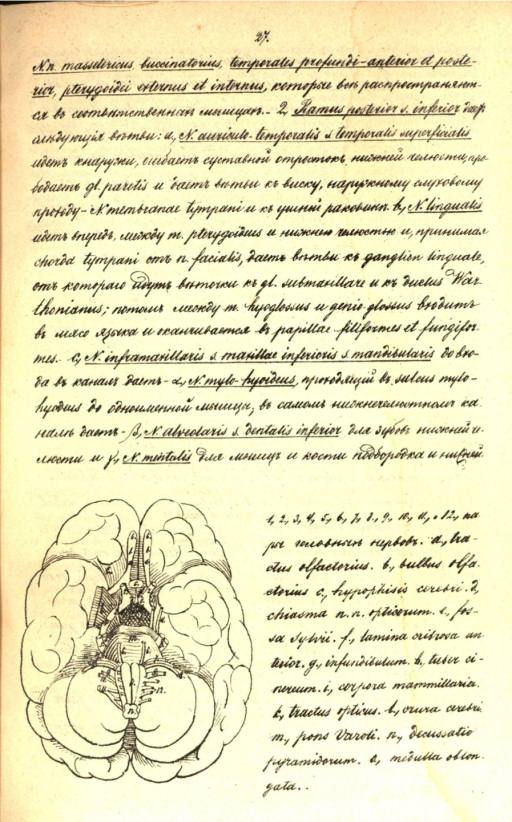 27.
N.n. massetericus, buccinatorius, temporales profundi-anterior et poste-
rior, pterygoidei externus et internus, которые всѣ распространяют-
ся въ соотвѣтственныхъ мышцахъ. - 2, Ramus posterior s. inferior даетъ
слѣдующія вѣтви: a, N. auriculo-temporalis s. temporalis superficialis
идетъ кнаружи, сгибаетъ суставной отростокъ нижней челюсти, про-
бодаетъ gl. parotis и даетъ вѣтви къ виску, наружному слуховому
проходу - N. membranae tympani и къ ушной раковинѣ. b, N. lingualis
идетъ впередъ, между m. pterygoideus и нижнею челюстью и, принимая
chorda tympani отъ n. facialis, даетъ вѣтви къ ganglion linguale,
отъ котораго идутъ вѣточки къ gl. submaxillare и къ ductus War-
thonianus; потомъ между m. hyoglossus и genio-glossus входитъ
въ мясо языка и оканчивается въ papillae filiformes et fungifor-
mes. - c, N. inframaxillaris s. maxillae inferioris s. mandibularis до вхо-
да въ каналъ даетъ - α, N. mylo-hyoideus, проходящій въ sulcus mylo-
hyoideus до одноименной мышцы; въ самомъ нижнечелюстномъ ка-
налѣ даетъ - β, N. alveolaris s. dentalis inferior для зубовъ нижней че-
люсти и γ, N. mentalis для мышцъ и кости подбородка и нижней
1, 2, 3, 4, 5, 6, 7, 8, 9, 10, 11, и 12, па
ры головныхъ нервовъ. a, tra-
ctus olfactorius. b, bulbus olfa-
ctorius c, hypophisis cerebri. d,
chiasma n.n. opticorum. e, fos-
sa Sylvii. f, lamina cribrosa an
terior. g, infundibulum. h, tuber ci-
nereum. i, corpora mammillaria.
k, tractus opticus. l, crura cerebri
m, pons Varoli. n, decussatio
pyramidorum. o, medulla oblon-
gata..